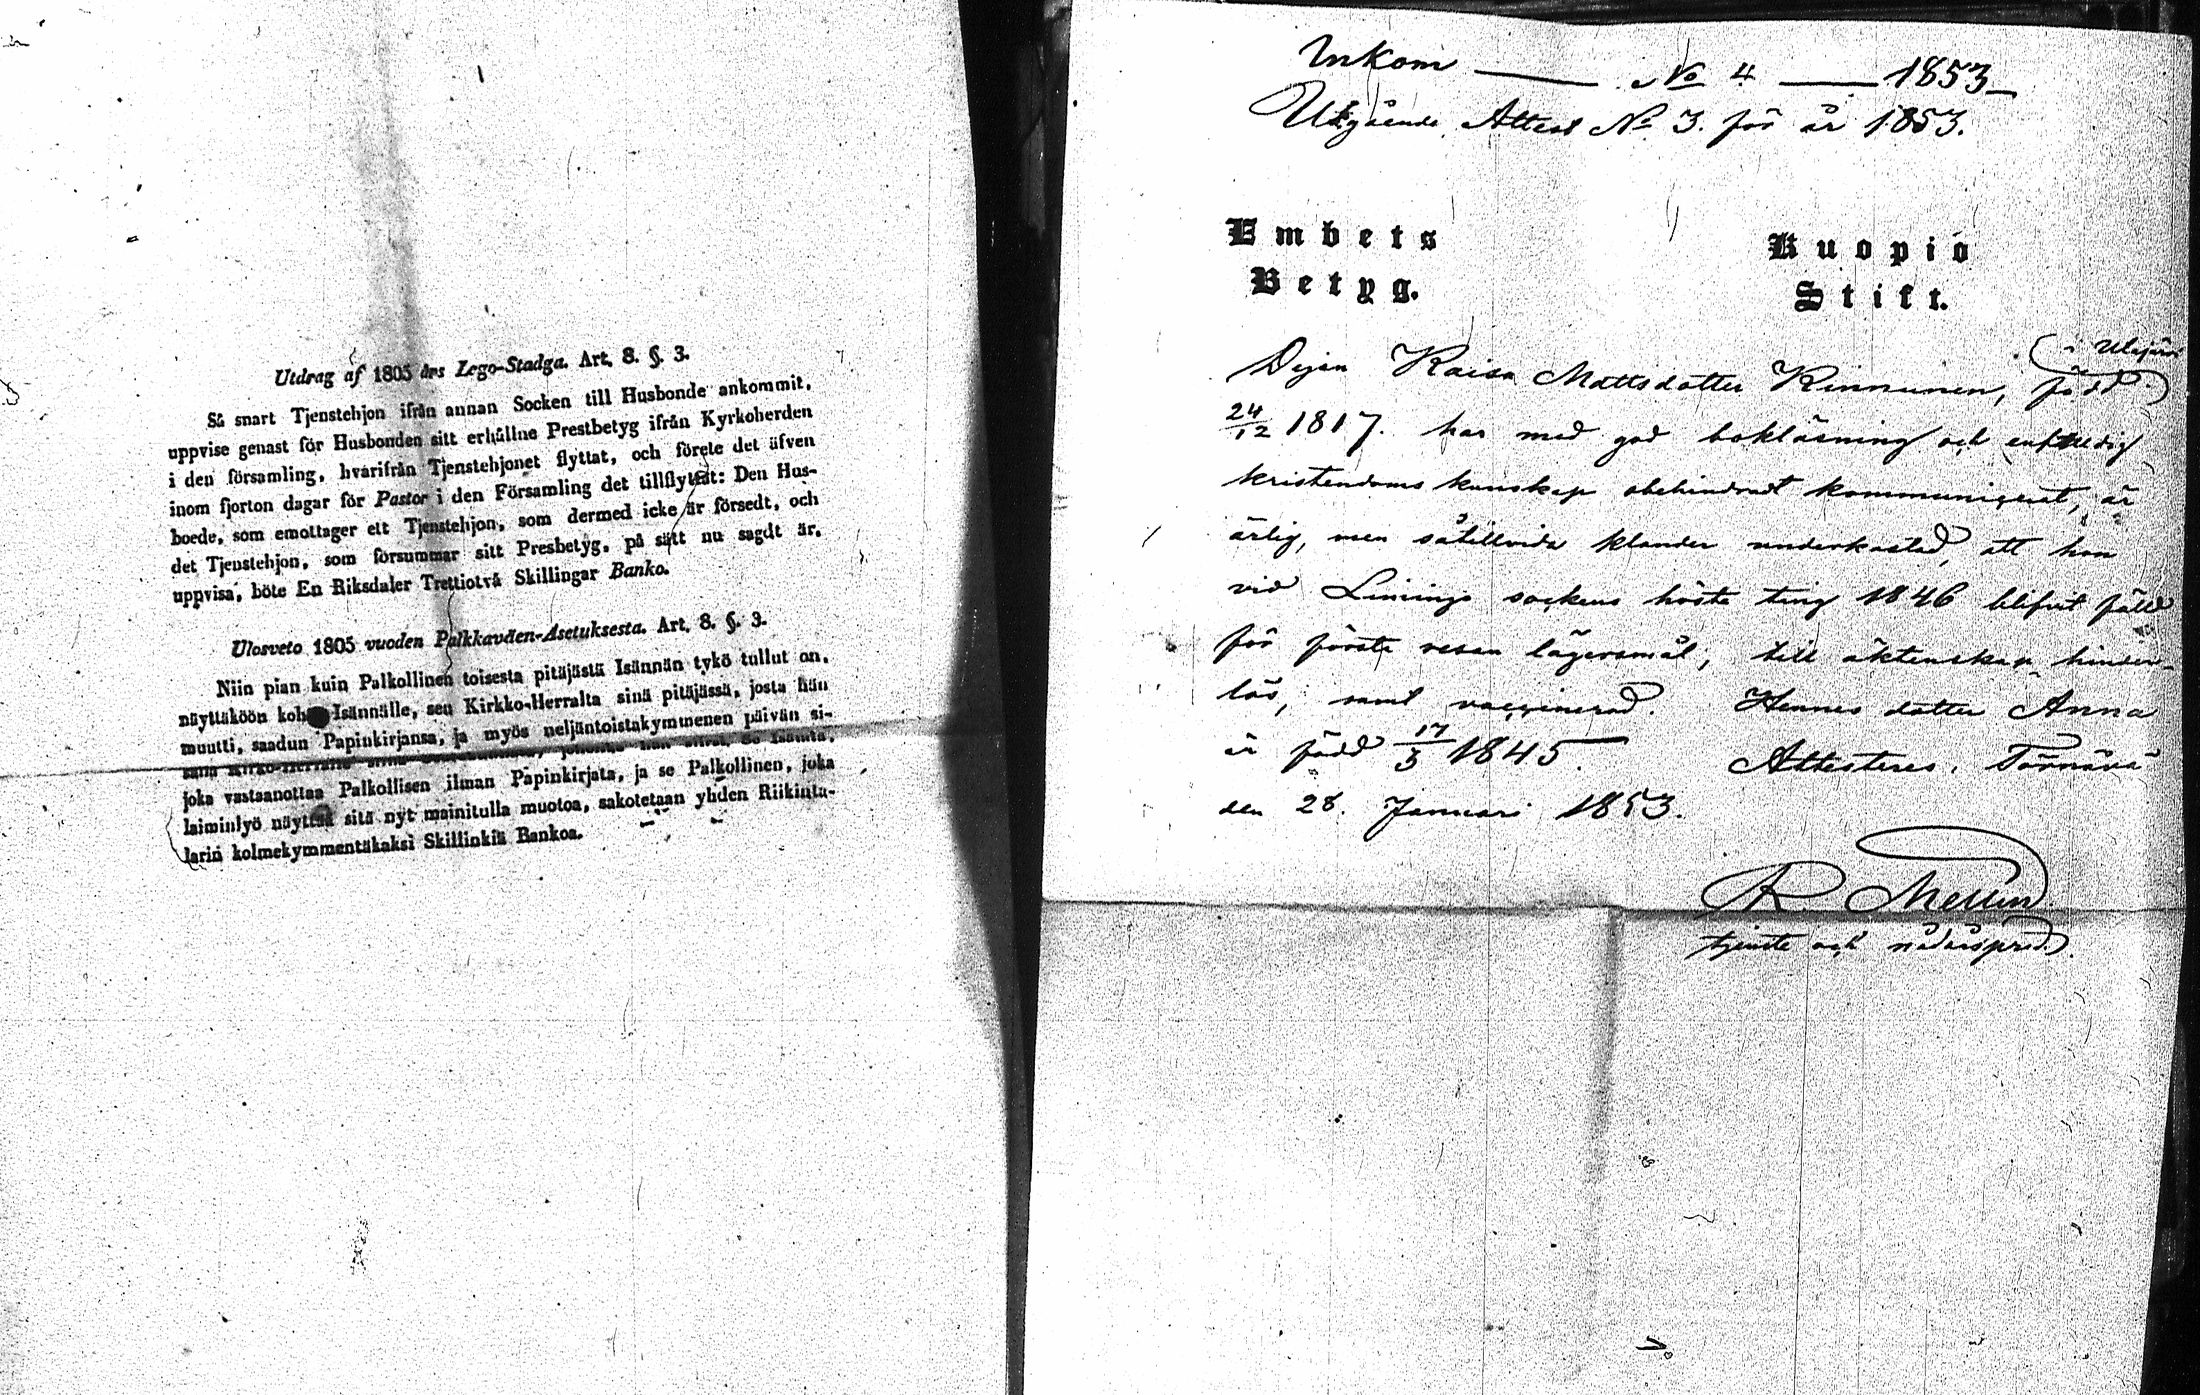 Utdrag af 1805 års Lego-Stadga. Art. 8. §. 3.
Så snart Tjenstehjon ifrån annan Socken till Husbonde ankommit,
uppvise genast för Husbonden sitt erhållne Prestbetyg ifrån Kyrkoherden
i den församling, hvarifrån Tjenstehjonet flyttat, och förete det äfven
inom fjorton dagar för Pastor i den Församling det tillflyttat: Den Hus-
boede, som emottager ett Tjenstehjon, som dermed icke är försedt, och
det Tjenstehjon, som försummar sitt Presbetyg, på sätt nu sagdt är,
uppvisa, böte En Riksdaler Trettiotvå Skillingar Banko.
Ulosveto 1805 vuoden Palkkaväen-Asetuksesta. Art. 8. §. 3.
Niin pian kuin Palkollinen toisesta pitäjästä Isännän tykö tullut on,
näyttäköön kohta Isännälle, sen Kirkko-Herralta sinä pitäjässä, josta hän
muutti, saadun Papinkirjansa, ja myös neljäntoistakymmenen päivän si-
joka vastaanottaa Palkollisen ilman Papinkirjata, ja se Palkollinen, joka
laiminlyö näyttää sitä nyt mainitulla muotoa, sakotetaan yhden Riikinta-
larin kolmekymmentäkaksi Skillinkiä Bankoa.
Inkom No 4 1853
Utgående Attest No 3. för år 1853.
Embets
Betyg.
Kuopio
Stift.
Pigan Kaisa Mattsdotter Kinnunen, född
24/12 1817. har med god bokläsning och enfaldig
kristendoms kunskap obehindradt kommunicerat, är
ärlig, men såtillvida klander underkastad, att hon
vid Limingo sockens höste ting 1846 blifvit fälld
för första resan lägersmål, till äktenskap hinder-
lös, samt vaccinerad. Hennes dotter Anna
är född 17/3 1845. Attesteres. Törnävä
den 28. Januari 1853.
Mellin
tjenste och nådårspred.